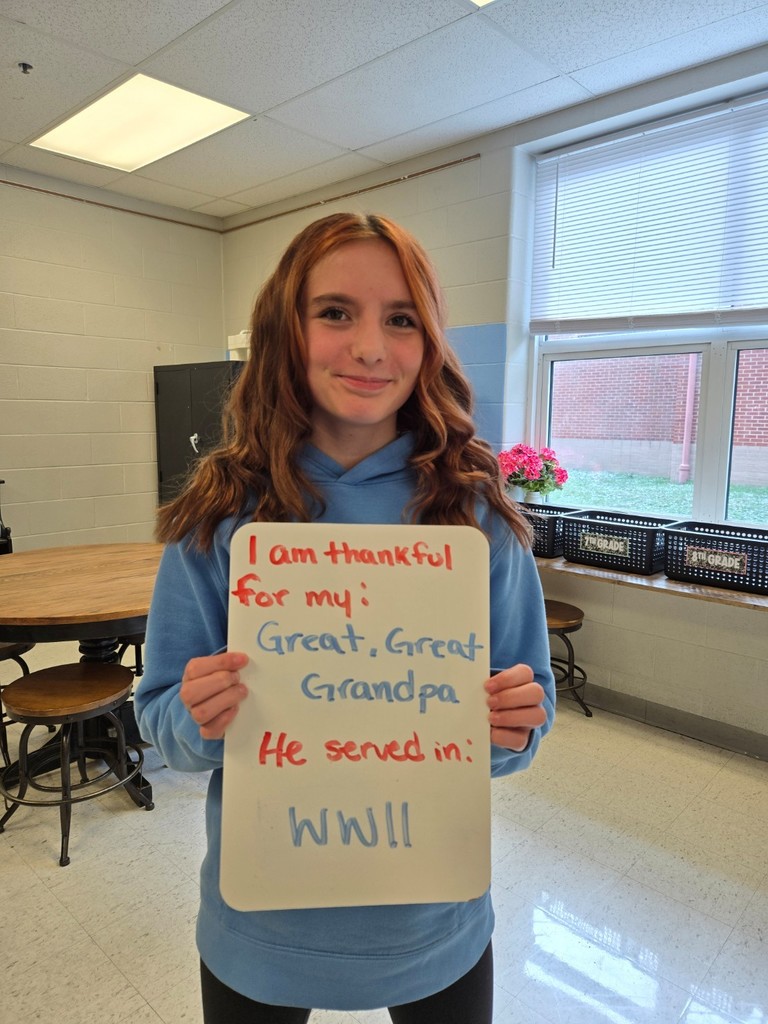 I am thankful
for my:
Great, Great
Grandpa
He served in:
WWII
7TH GRADE
8TH GRADE